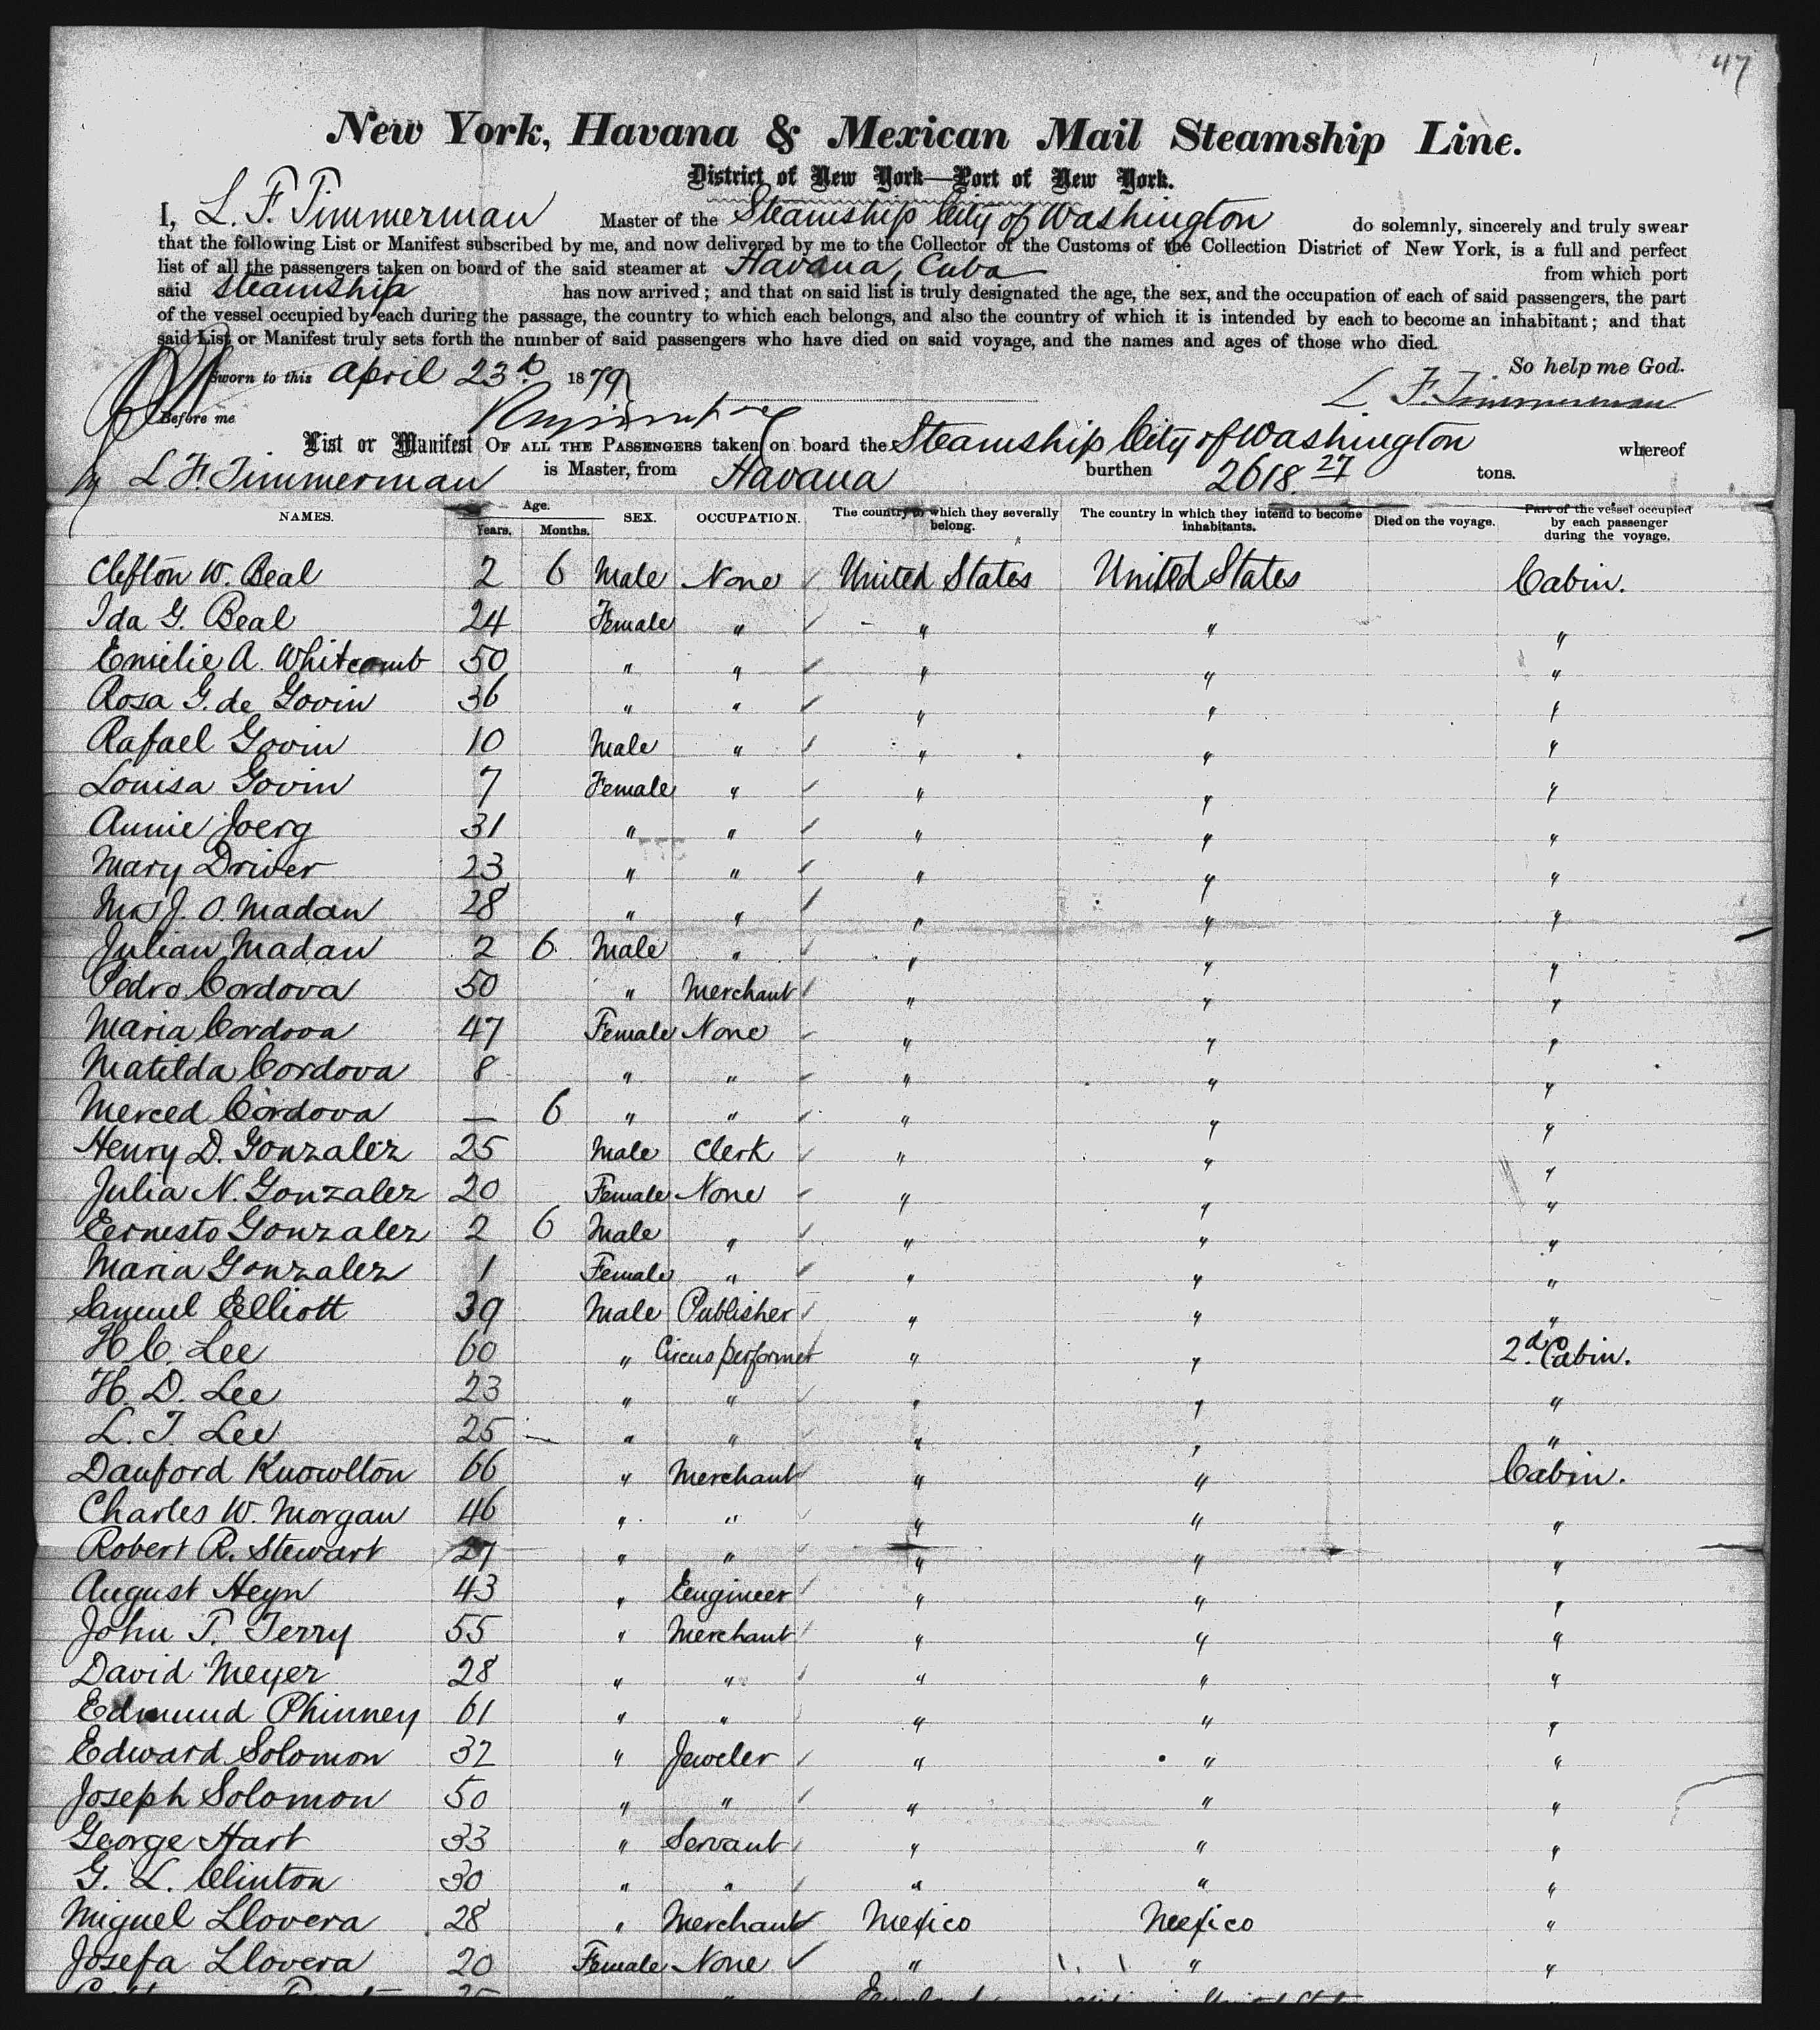 47
New York, Havana & Mexican Mail Steamship Line.
District of New York—Port of New York.
I, L. F. Timmerman Master of the Steamship City of Washington do solemnly, sincerely and truly swear
that the following List or Manifest subscribed by me, and now delivered by me to the Collector of the Customs of the Collection District of New York, is a full and perfect
list of all the passengers taken on board of the said steamer at Havana, Cuba from which port
said steamship has now arrived; and that on said list is truly designated the age, the sex, and the occupation of each of said passengers, the part
of the vessel occupied by each during the passage, the country to which each belongs, and also the country of which it is intended by each to become an inhabitant; and that
said List or Manifest truly sets forth the number of said passengers who have died on said voyage, and the names and ages of those who died.
So help me God.
Sworn to this April 23d 1879
L. F. Timmerman
Before me
List or Manifest OF ALL THE PASSENGERS taken on board the Steamship City of Washington whereof
L. F. Timmerman is Master, from Havana burthen 2618.27 tons.
NAMES. Age. Years. Months. SEX. OCCUPATION. The country to which they severally belong. The country in which they intend to become inhabitants. Died on the voyage. Part of the vessel occupied by each passenger during the voyage.
Clefton W. Beal 2 6 Male None United States United States Cabin.
Ida G. Beal 24 Female " " " "
Emilie A. Whitcomb 50 " " " " "
Rosa G. de Govin 36 " " " " "
Rafael Govin 10 Male " " " "
Louisa Govin 7 Female " " " "
Annie Joerg 31 " " " " "
Mary Driver 23 " " " " "
Mrs J. O. Madan 28 " " " " "
Julian Madan 2 6 Male " " " "
Pedro Cordova 50 " Merchant " " "
Maria Cordova 47 Female None " " "
Matilda Cordova 8 " " " " "
Merced Cordova — 6 " " " " "
Henry D. Gonzalez 25 Male Clerk " " "
Julia N. Gonzalez 20 Female None " " "
Eernesto Gonzalez 2 6 Male " " " "
Maria Gonzalez 1 Female " " " "
Samuel Elliott 39 Male Publisher " " "
H. C. Lee 60 " Circus performer " " 2d Cabin.
H. D. Lee 23 " " " " "
L. T. Lee 25 — " " " " "
Danford Knowlton 66 " Merchant " " Cabin.
Charles W. Morgan 46 " " " " "
Robert R. Stewart 27 " " " " "
August Heyn 43 " Eengineer " " "
John T. Terry 55 " Merchant " " "
David Meyer 28 " " " " "
Edmund Phinney 61 " " " " "
Edward Solomon 32 " Jeweler " " "
Joseph Solomon 50 " " " " "
George Hart 33 " Servant " " "
G. L. Clinton 30 " " " " "
Miguel Llovera 28 " Merchant Mexico Mexico "
Josefa Llovera 20 Female None " " "